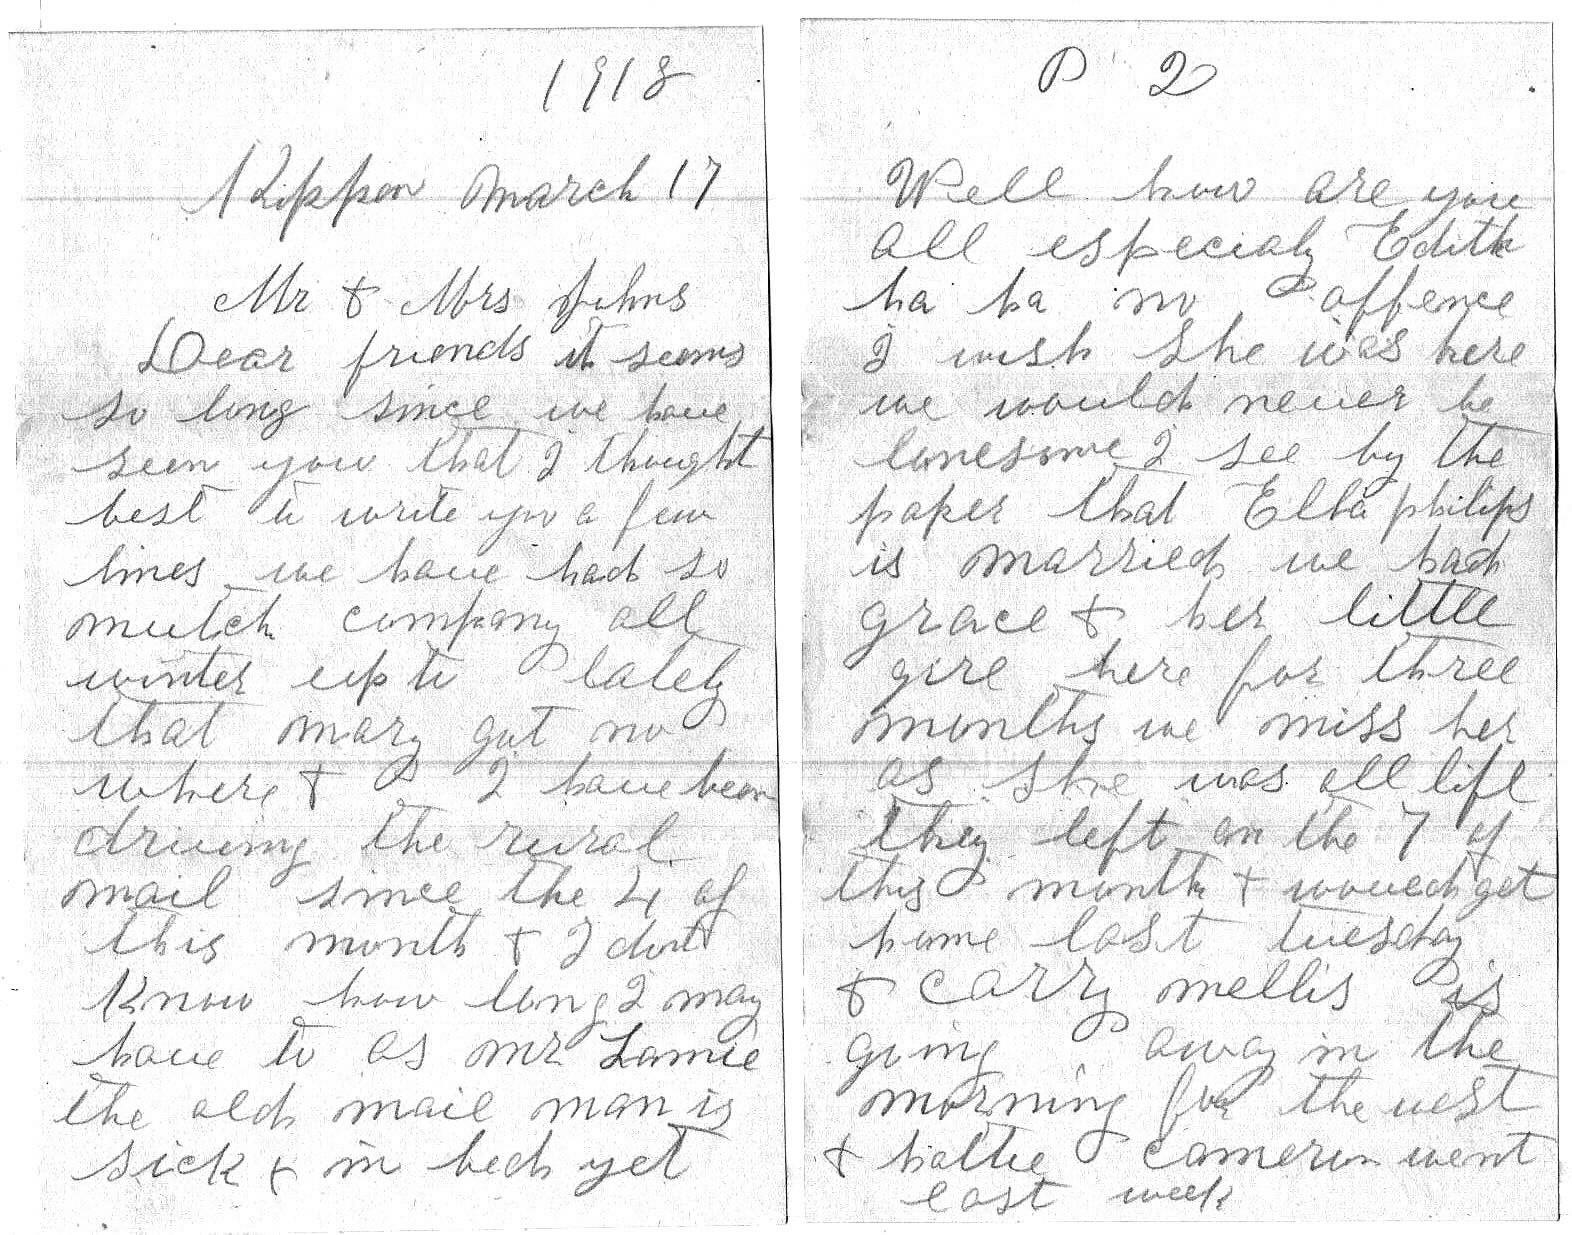 1918
Kippen March 17
Mr & Mrs Johns
Dear friends it seems
so long since we have
seen you that I thought
best to write you a few
lines we have had so
mutch company all
winter up to lately
that mary got no
where & I have been
driving the rural
mail since the 4 of
this month & I dont
Know how long I may
have to as mr Lamie
the old mail man is
sick & in bed yet
P 2
Well how are you
all especialy Edith
ha ha no offence
I wish she was here
we would never be
lonesome I see by the
paper that Ella philips
is married we had
grace & her little
girl here for three
months we miss her
as she was all life
they left on the 7 of
this month & would get
home last tuesday
& carry mellis is
going away in the
morning for the west
& hattie cameron went
last week